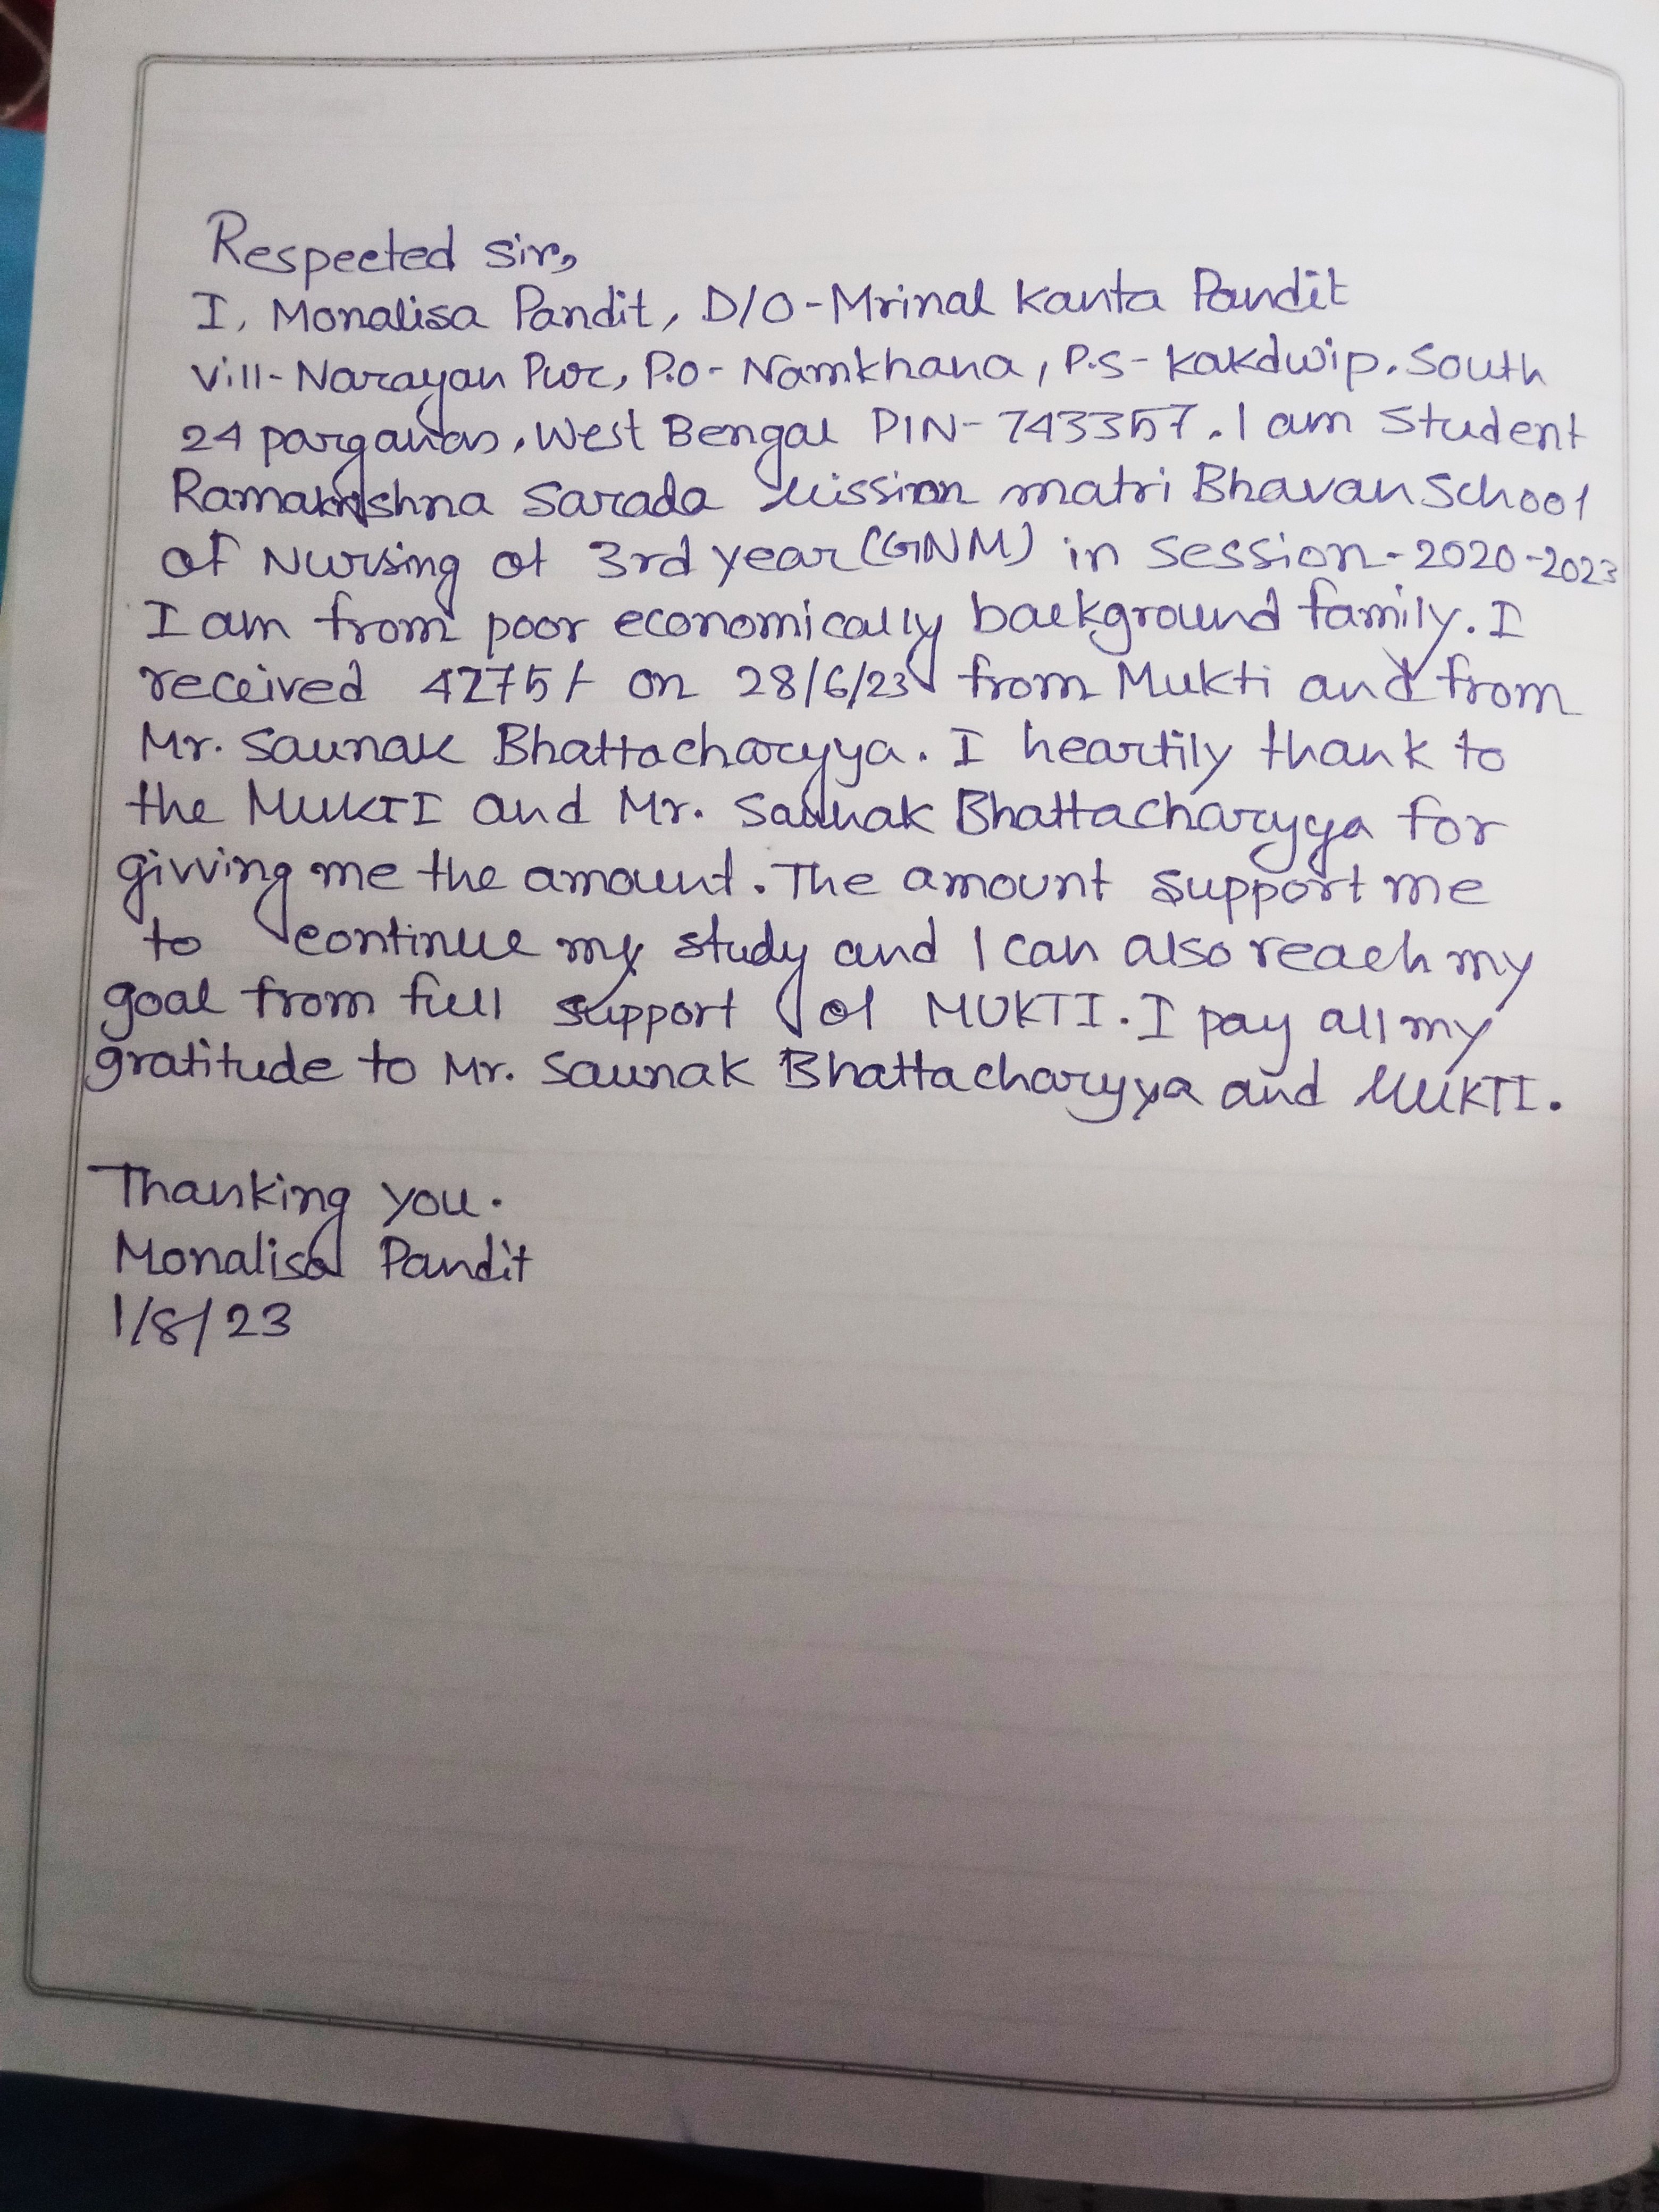 Respected sir,
I, Monalisa Pandit, D/O-Mrinal Kanta Pandit
Vill-Narayan Pur, P.O- Namkhana, P.S- Kakdwip. South
24 parganas, West Bengal PIN- 743357. I am Student
Ramakrishna Sarada Mission matri Bhavan School
of Nursing of 3rd year (GNM) in Session-2020-2023
I am from poor economically background family. I
received 4275/- on 28/6/23 from Mukti and from
Mr. Saunak Bhattacharyya. I heartily thank to
the MUKTI and Mr. Saunak Bhattacharyya for
givving me the amount. The amount support me
to continue my study and I can also reach my
goal from full support of MUKTI. I pay all my
gratitude to Mr. Saunak Bhattacharyya and MUKTI.
Thanking you.
Monalisa Pandit
1/8/23